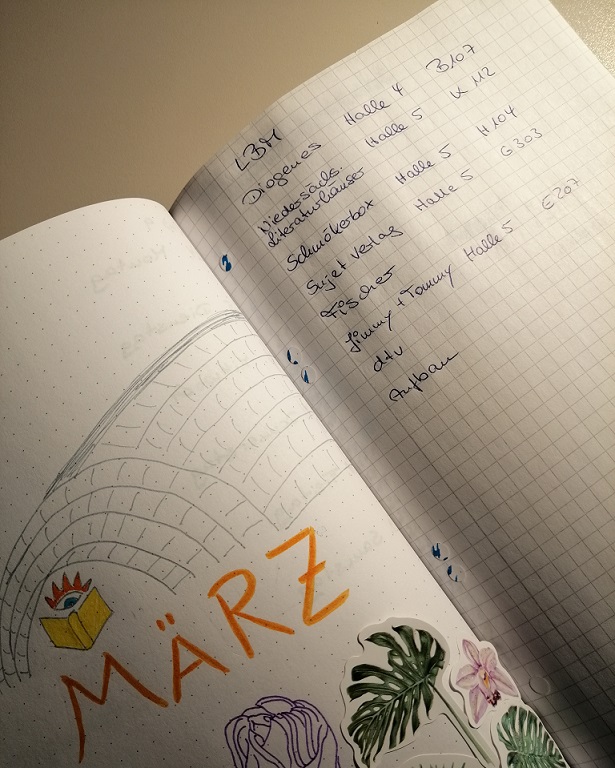 LBM
Diogenes Halle 4 B107
Niedersächs. Halle 5 K 112
Literaturhäuser
Schmökerbox Halle 5 H104
Sujet Verlag Halle 5 G303
Fischer
Jimmy + Tommy Halle 5 E207
dtv
Aufbau
MÄRZ